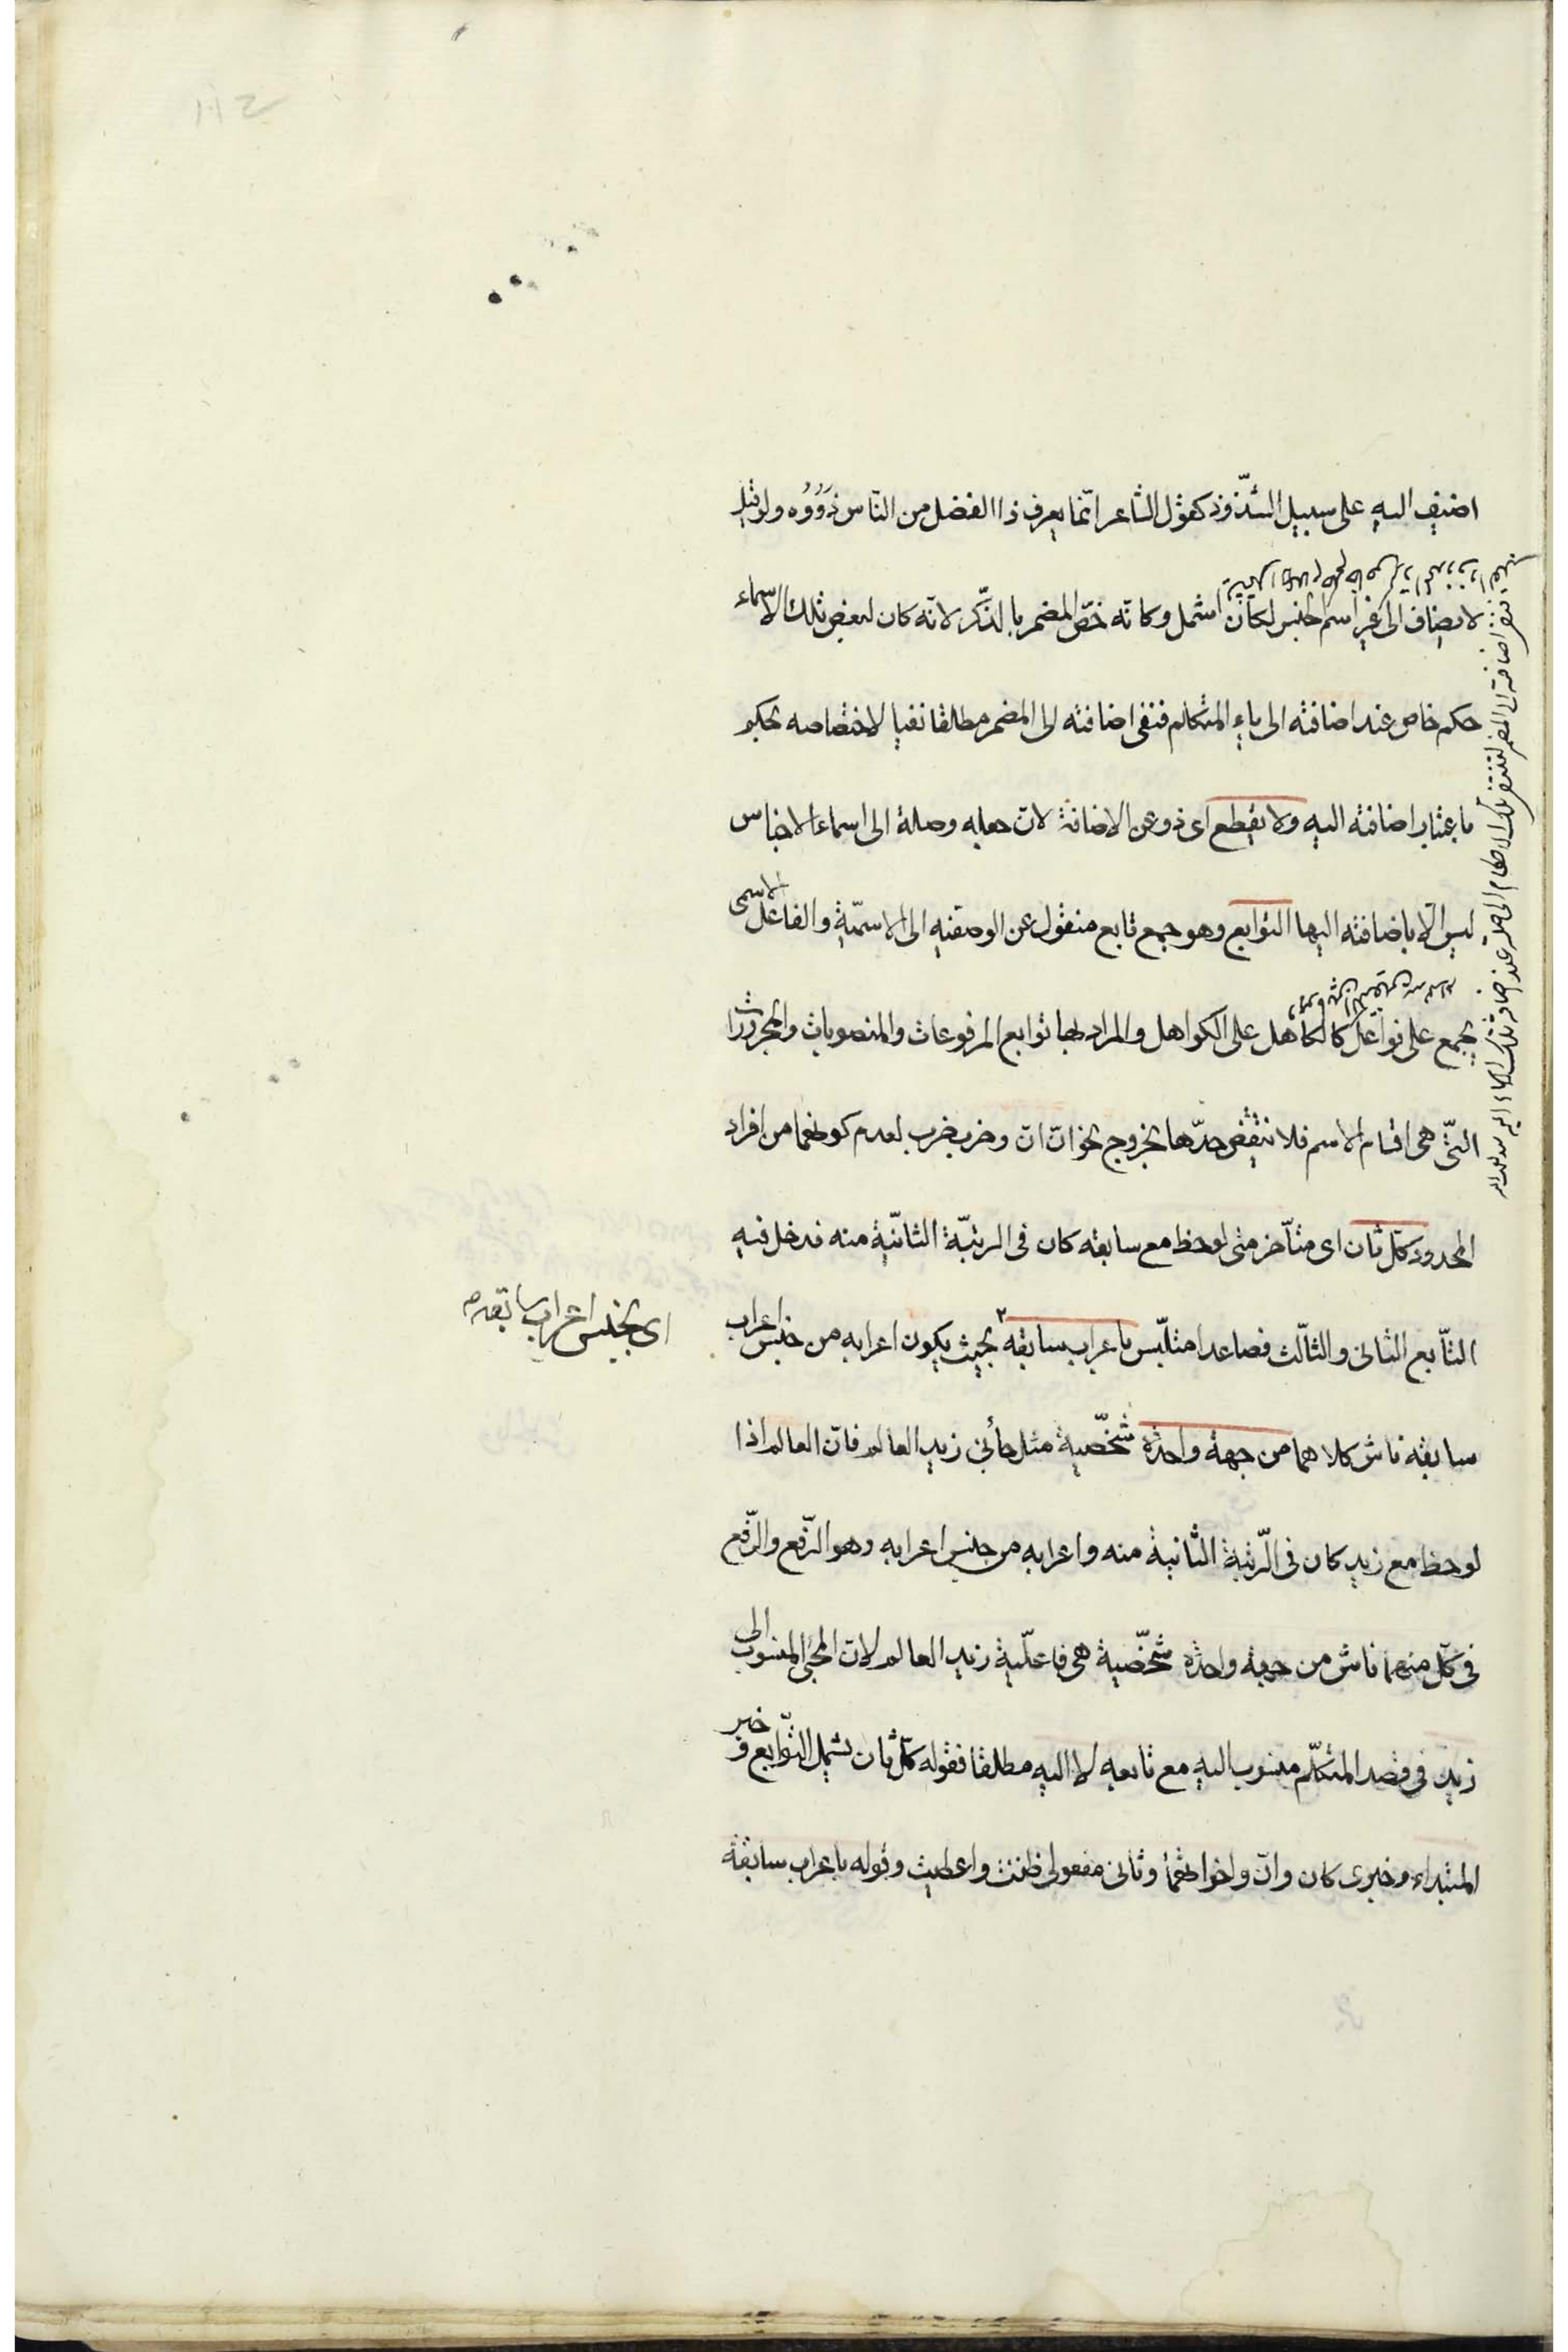 اضيف اليه على سبيل الشذوذ كقول الشاعر انّما يعرف ذا الفضل من النّاس ذَوُوُه ولو قيل
لا يضاف الى غير اسم الجنس لكان اشمل وكانّه خصّ المضمر بالذّكر لانّه كان لبعض تلك الاسماء
حكم خاص عند اضافته الى ياء المتكلم فنفى اضافته الى المضمر مطلقا نفيا لاختصاصه بحكم
باعتبار اضافته اليه ولا يقطع اى ذو عن الاضافة لان جعله وصلة الى اسماء الاجناس
ليس الّا باضافته اليها التوابع وهو جمع تابع منقول عن الوصفيه الى الاسميّة والفاعل الاسمى
يجمع على فواعل كالكاهل على الكواهل والمراد بها توابع المرفوعات والمنصوبات والمجرورات
الّتى هى اقسام الاسم فلا ينتقض حدّها بخروج نحو انّ انّ وضرب ضرب لعدم كونهما من افراد
المحدود كلّ ثان اى متأخّر متى لوحظ مع سابقه كان فى الرتبّة الثانيّة منه فدخل فيه
التّابع الثانى والثالّث فصاعدا متلبّس باعراب سابقه ٢ بحيث يكون اعرابه من جنس اعراب
اى بجنس اعراب سابقه م
سابقه ناش كلاهما من جهة واحدة شخّصية مثل جائنى زيد العالم فانّ العالم اذا
لوحظ مع زيد كان فى الرّتبة الثانية منه واعرابه من جنس اعرابه وهو الرّفع والرّفع
فى كلّ منهما ناش من جهة واحدة شخّصية هى فاعلّية زيد العالم لان المجئ المنسوب الى
زيد فى قصد المتكلّم منسوب اليه مع تابعه لا اليه مطلقا فقوله كلّ ثان يشمل التّوابع و خبر
المبتداء وخبرى كان وانّ واخواتهما وثانى مفعولى ظننت واعطيت وقوله باعراب سابقه